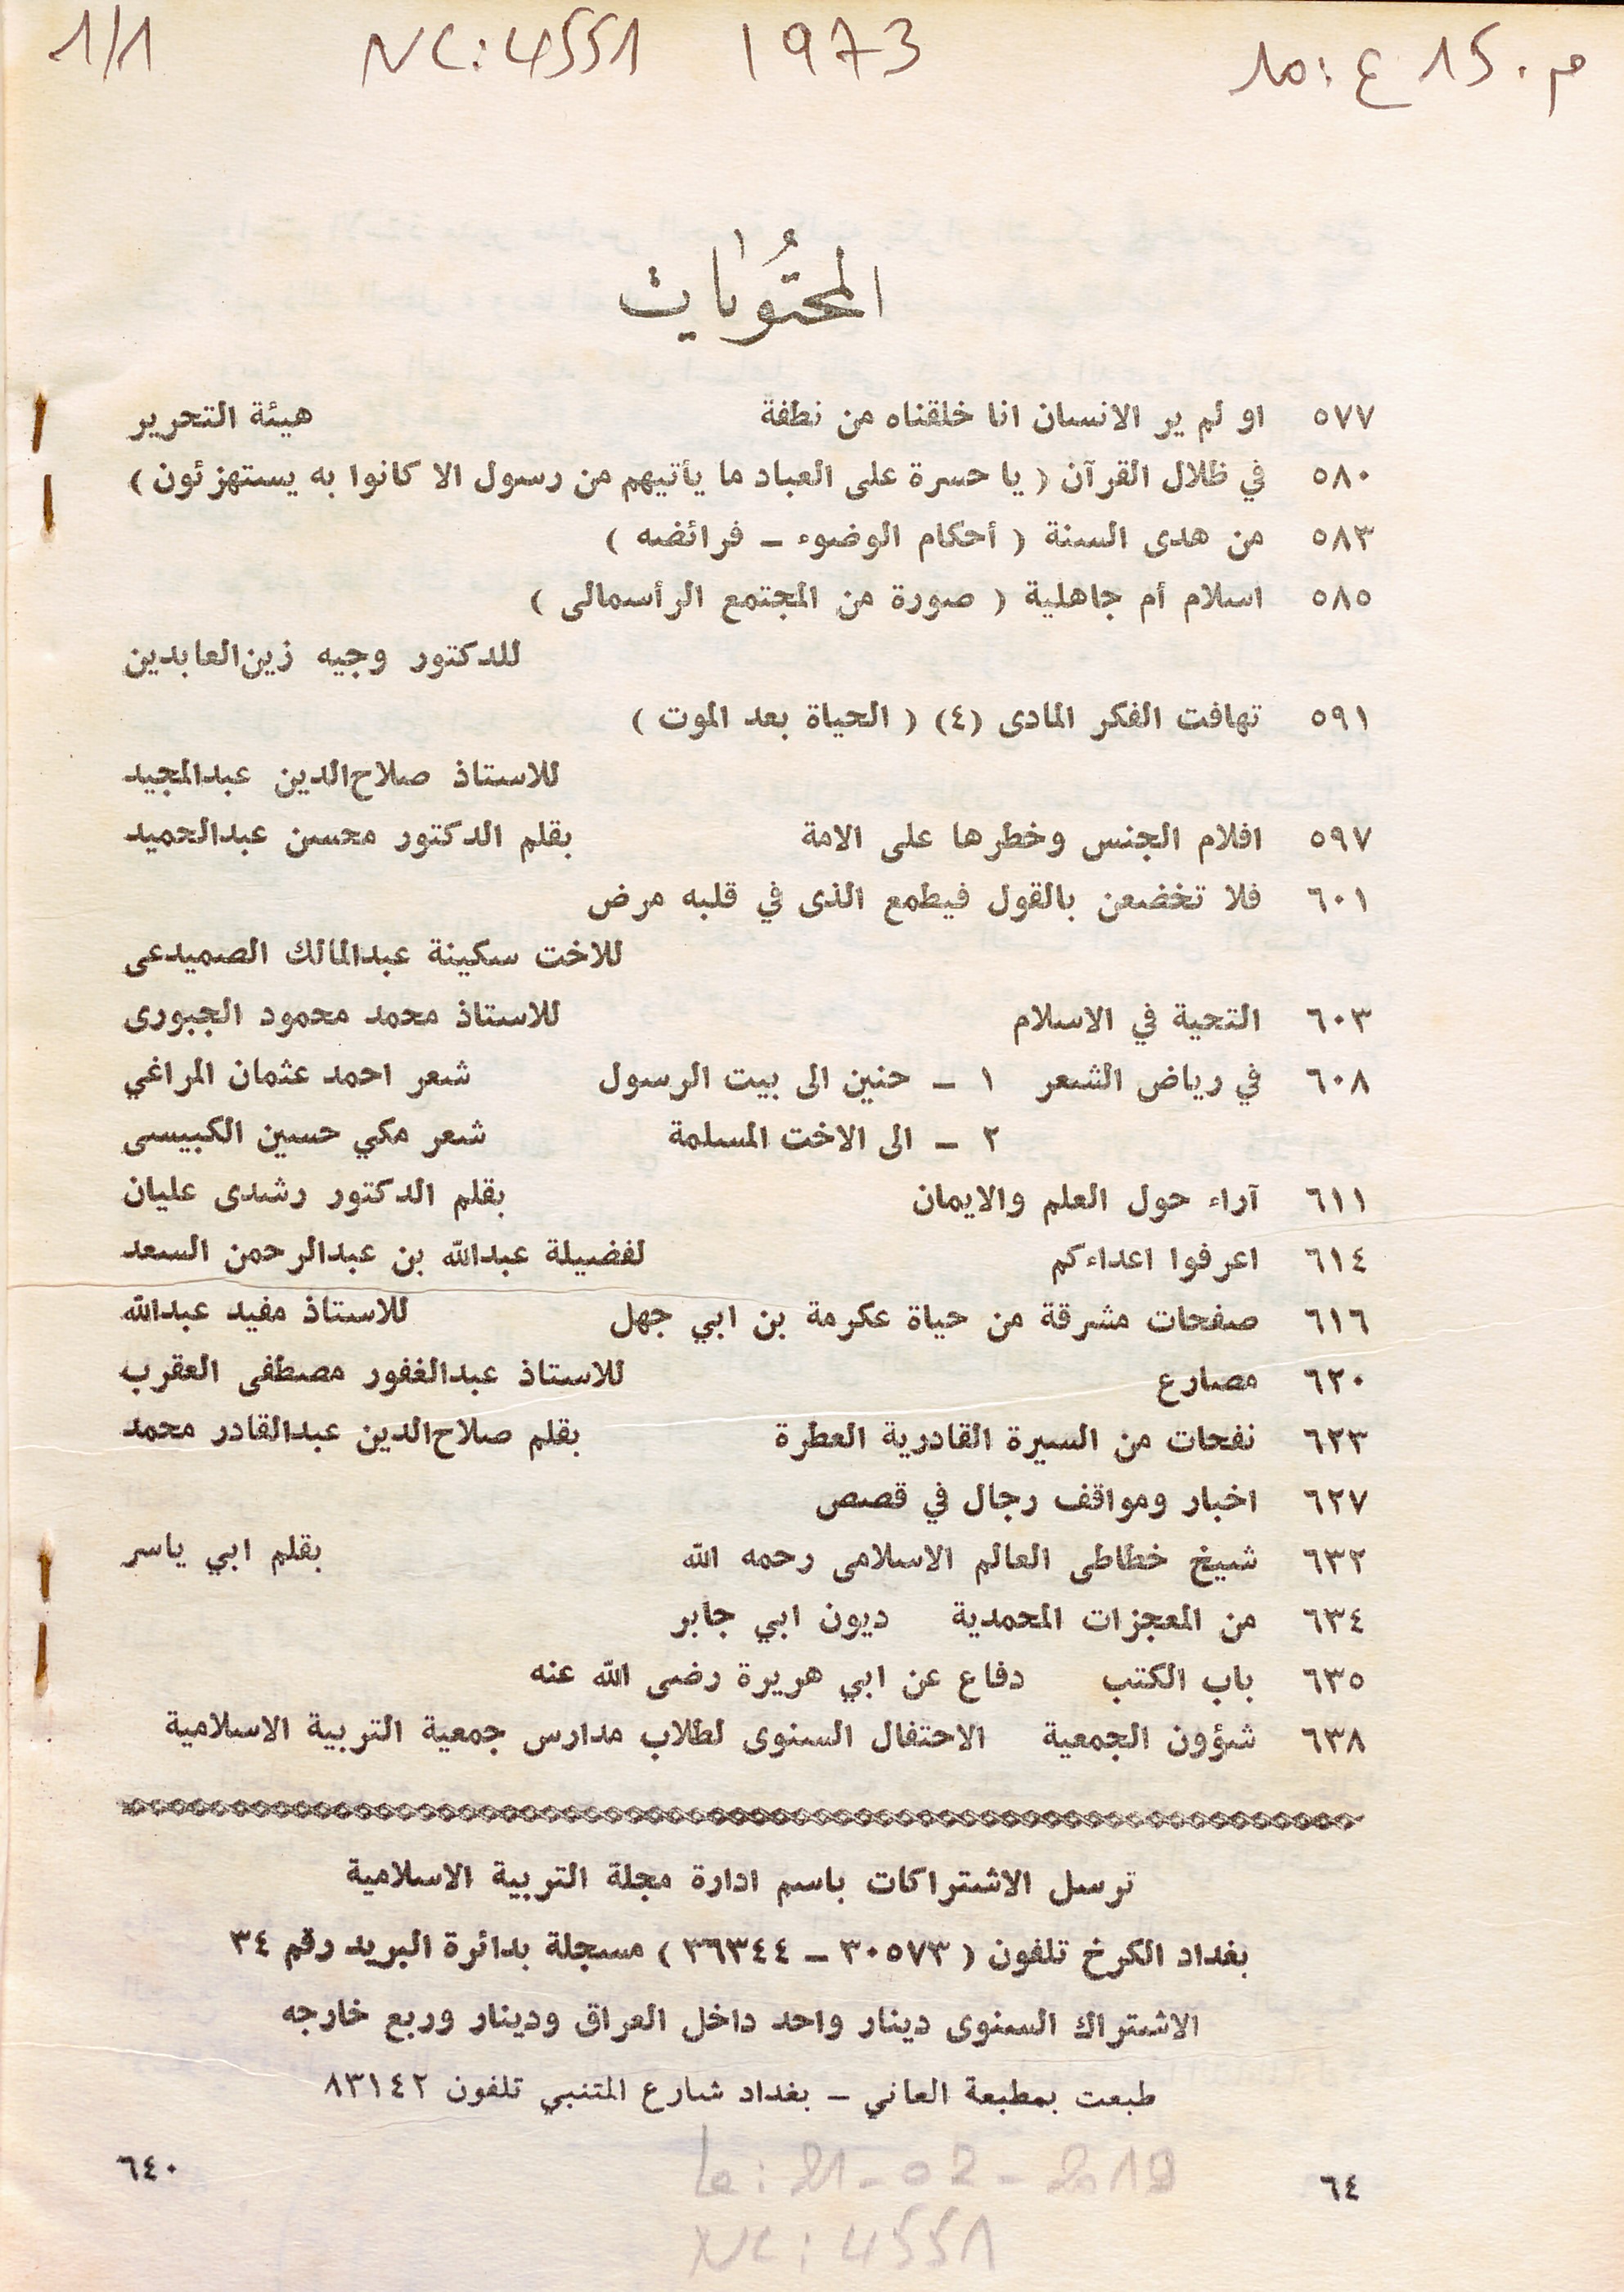 م. 15 ع: 10 1973 NC: 4551 1/1
المحتويات
٥٧٧ او لم ير الانسان انا خلقناه من نطفة هيئة التحرير
٥٨٠ في ظلال القرآن ( يا حسرة على العباد ما يأتيهم من رسول الا كانوا به يستهزئون )
٥٨٣ من هدى السنة ( أحكام الوضوء ـ فرائضه )
٥٨٥ اسلام أم جاهلية ( صورة من المجتمع الرأسمالى )
للدكتور وجيه زين‌العابدين
٥٩١ تهافت الفكر المادى (٤) ( الحياة بعد الموت )
للاستاذ صلاح‌الدين عبدالمجيد
٥٩٧ افلام الجنس وخطرها على الامة بقلم الدكتور محسن عبدالحميد
٦٠١ فلا تخضعن بالقول فيطمع الذى في قلبه مرض
للاخت سكينة عبدالمالك الصميدعى
٦٠٣ التحية في الاسلام للاستاذ محمد محمود الجبورى
٦٠٨ في رياض الشعر ١ ـ حنين الى بيت الرسول شعر احمد عثمان المراغي
٢ ـ الى الاخت المسلمة شعر مكي حسين الكبيسى
٦١١ آراء حول العلم والايمان بقلم الدكتور رشدى عليان
٦١٤ اعرفوا اعداءكم لفضيلة عبدالله بن عبدالرحمن السعد
٦١٦ صفحات مشرقة من حياة عكرمة بن ابي جهل للاستاذ مفيد عبدالله
٦٢٠ مصارع للاستاذ عبدالغفور مصطفى العقرب
٦٢٣ نفحات من السيرة القادرية العطرة بقلم صلاح‌الدين عبدالقادر محمد
٦٢٧ اخبار ومواقف رجال في قصص
٦٣٢ شيخ خطاطى العالم الاسلامى رحمه الله بقلم ابي ياسر
٦٣٤ من المعجزات المحمدية ديون ابي جابر
٦٣٥ باب الكتب دفاع عن ابي هريرة رضى الله عنه
٦٣٨ شؤون الجمعية الاحتفال السنوى لطلاب مدارس جمعية التربية الاسلامية
ترسل الاشتراكات باسم ادارة مجلة التربية الاسلامية
بغداد الكرخ تلفون ( ٣٠٥٧٣ ـ ٣٦٣٤٤ ) مسجلة بدائرة البريد رقم ٣٤
الاشتراك السنوى دينار واحد داخل العراق ودينار وربع خارجه
طبعت بمطبعة العاني ـ بغداد شارع المتنبي تلفون ٨٣١٤٢
٦٤ ٦٤٠
Le: 21-02-2019
NC: 4551